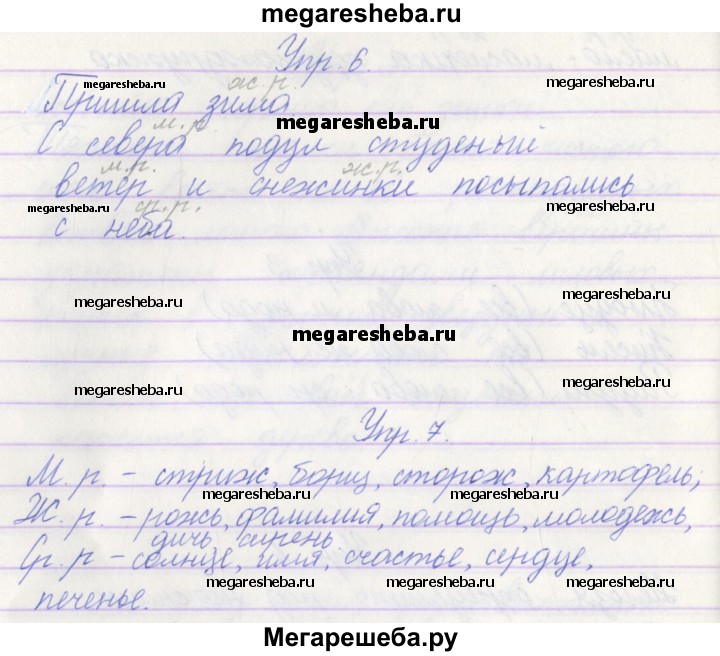 megaresheba.ru
Упр. 6.
megaresheba.ru ж.р. megaresheba.ru
Пришла зима
м.р. megaresheba.ru
С севера подул студеный
м.р. ж.р.
ветер и снежинки посыпались
megaresheba.ru ср.р. megaresheba.ru megaresheba.ru
с неба.
megaresheba.ru megaresheba.ru
megaresheba.ru
megaresheba.ru megaresheba.ru
Упр. 7.
М. р. – стриж, борщ, сторож, картофель;
megaresheba.ru megaresheba.ru
Ж. р. – рожь, фамилия, помощь, молодежь,
дичь сирень
Ср. р – солнце, имя, счастье, сердце,
megaresheba.ru megaresheba.ru megaresheba.ru
печенье.
Мегарешеба.ру